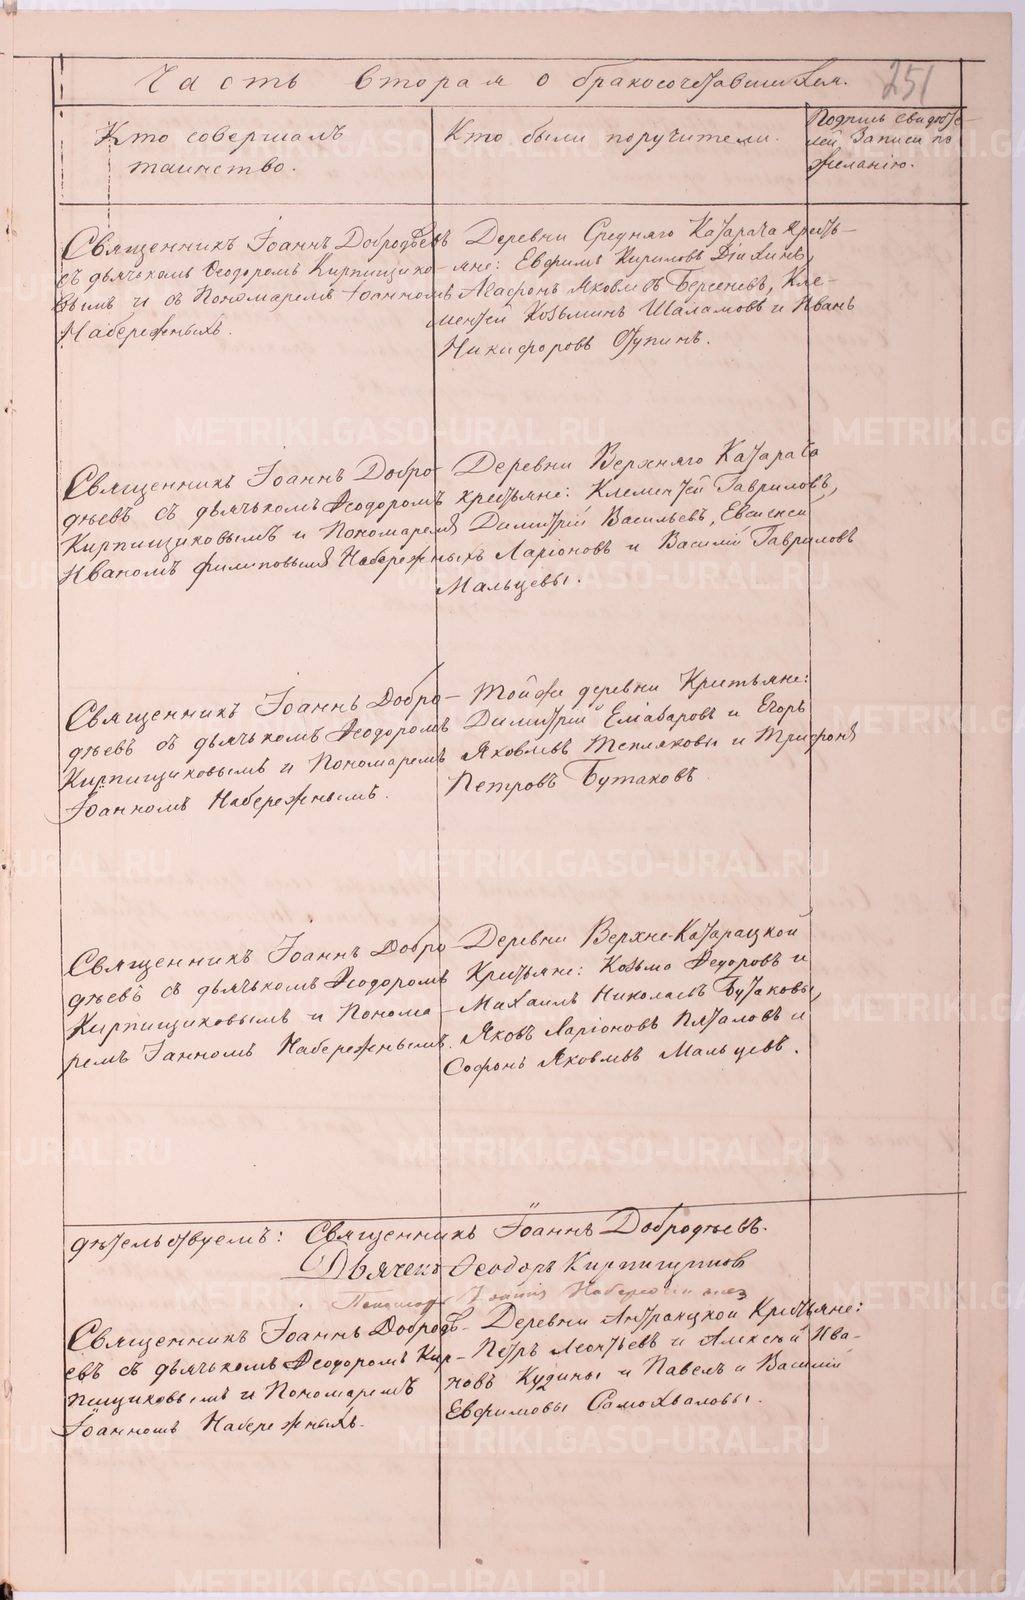 Часть вторая о бракосочетавшихся.
251
Кто совершалъ
таинство.
Кто были поручители.
Подпись свидѣте-
лей записи по
желанію.
Священникъ Іоаннъ Добродѣевъ
съ дьячькомъ Ѳеодоромъ Кирпищико-
вымъ и съ Пономаремъ Іоанномъ
Набережныхъ.
Деревни Средняго Катарача Кресть-
яне: Евфимъ Кириловъ
Агафонъ Яковлевъ Берсеневъ, Кле-
ментей Козьминъ Шаламовъ и Иванъ
Никифоровъ Ступинъ.
Священникъ Іоаннъ Добро-
дѣевъ съ дьячькомъ Ѳеодоромъ
Кирпищиковымъ и Пономаремъ
Иваномъ Филиповымъ Набережныхъ
Деревни Верхняго Катарача
крестьяне: Клементей Гавриловъ,
Димитрій Васильевъ, Евсевей
Ларіоновъ и Василій Гавриловъ
Мальцевы.
Священникъ Іоаннъ Добро-
дѣевъ съ дьячькомъ Ѳеодоромъ
Кирпищиковымъ и Пономаремъ
Іоанномъ Набережнымъ.
Тойже деревни Крестьяне:
Димитрій и Егоръ
Яковлевъ Тепляковы и Трифонъ
Петровъ Бутаковъ
Священникъ Іоаннъ Добро-
дѣевъ съ дьячькомъ Ѳеодоромъ
Кирпищиковымъ и Понома-
ремъ Іанномъ Набережнымъ.
Деревни Верхне-Катарацкой
Крестьяне: Козьма Ѳедоровъ и
Михаилъ Николаевъ Бутаковы,
Яковъ Ларіоновъ Пяталовъ и
Софонъ Яковлевъ Мальцевъ.
дѣтельствуемъ: Священникъ Іоаннъ Добродѣевъ.
Дьячекъ Ѳеодоръ Кирпищиков
Пономарь Іоаннъ
Священникъ Іоаннъ Добродѣ-
евъ съ дьячькомъ Ѳеодоромъ Кир-
пищиковымъ и Пономаремъ
Іоанномъ Набережныхъ.
Деревни Антракцкой Крестьяне:
Петръ Леонтьевъ и Алексѣй Ива-
новъ Кудины и Павелъ и Василій
Евфимовы Самохваловы.
METRIKI.GASO-URAL.RU